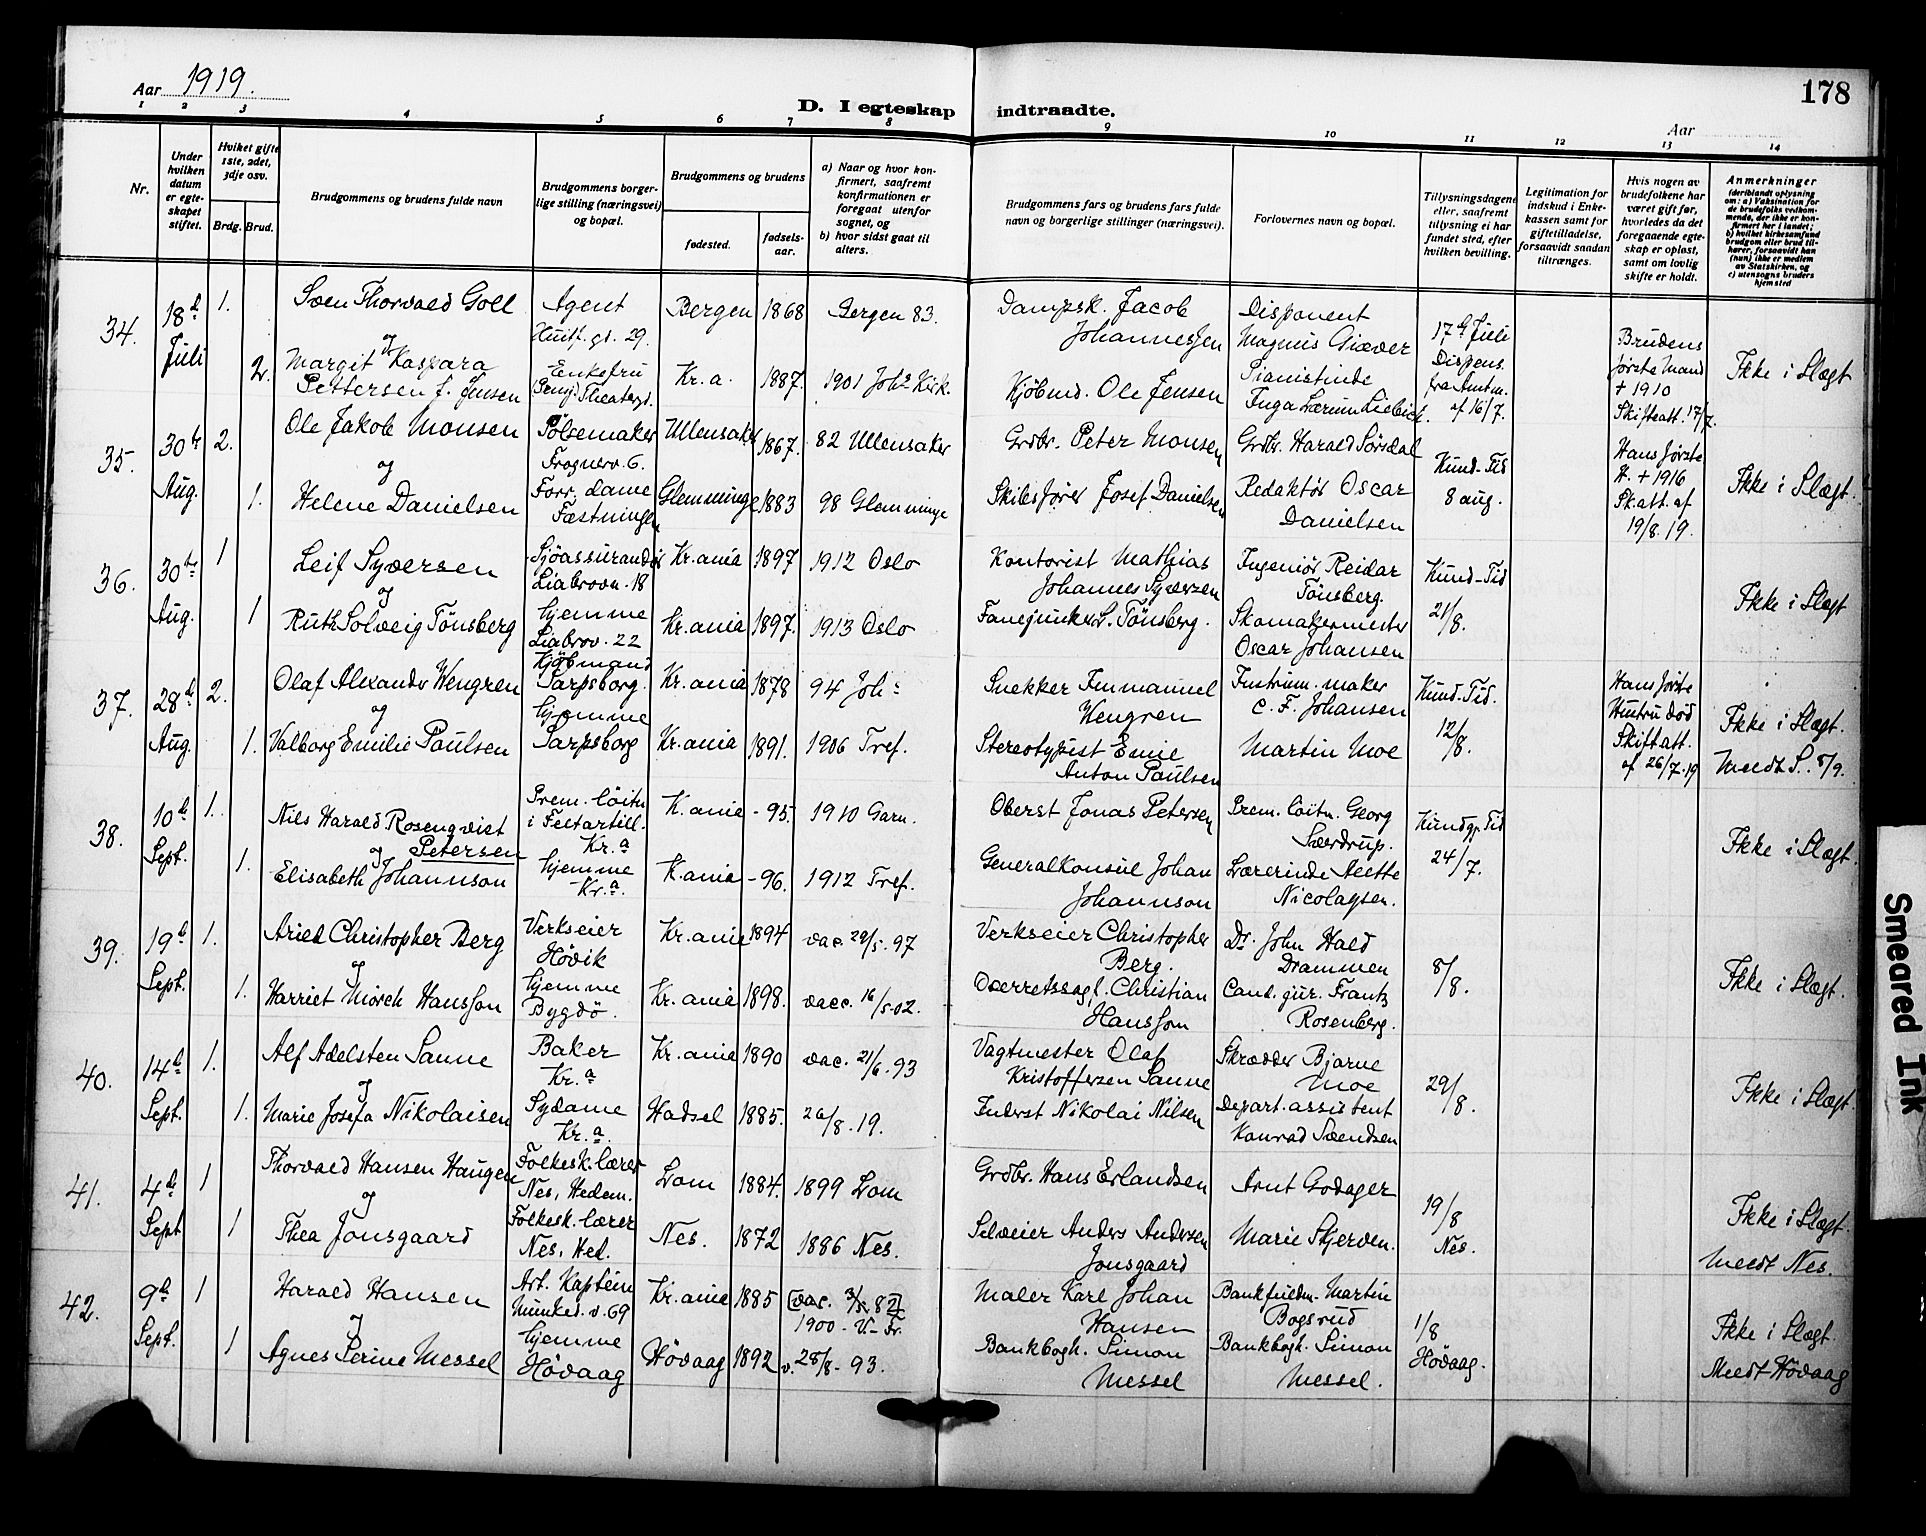 Aar 1919.
178
D. I egteskap indtraadte.
Aar
1 2 3 4 5 6 7 8 9 10 11 12 13 14
Nr.
Under hvilken datum er egteskapet stiftet.
Hvilket gifte 1ste, 2det, 3dje osv.
Brdg. Brud.
Brudgommens og brudens fulde navn
Brudgommens borgerlige stilling (næringsvei) og bopæl.
Brudgommens og brudens
fødested.
fødselsaar.
a) Naar og hvor konfirmert, saafremt konfirmationen er foregaat utenfor sognet, og b) hvor sidst gaat til alters.
Brudgommens fars og brudens fars fulde navn og borgerlige stillinger (næringsvei).
Forlovernes navn og bopæl.
Tillysningsdagene eller, saafremt tillysning ei har fundet sted, efter hvilken bevilling.
Legitimation for indskud i Enkekassen samt for giftetilladelse, forsaavidt saadan tiltrænges.
Hvis nogen av brudefolkene har været gift før, hvorledes da det foregaaende egteskap er opløst, samt om lovlig skifte er holdt.
Anmerkninger (deriblandt oplysning om: a) Vaksination for de brudefolks vedkommende, der ikke er konfirmert her i landet; b) hvilket kirkesamfund brudgom eller brud tilhører, forsaavidt han (hun) ikke er medlem av Statskirken, og c) utensogns bruders hjemsted
34. 18d Juli 1. Sven Thorvald Goll Agent Huitf. gt. 29. Bergen 1868 Bergen 83. Dampsk. Jacob Johannessen Disponent Magnus Giæver 17d Juli Dispens. fra Amtm. af 16/7. Brudens første Mand + 1910 Skifteatt. 17/7. Ikke i Slægt
og
2. Margit Kaspara Pettersen f. Jensen Enkefru Theatergt. Kr.a. 1887. 1901 Johs Kirk. Kjøbmd. Ole Jensen Pianistinde Inga Lærum Liebich.
35. 30te Aug. 2. Ole Jakob Monsen Pølsemaker Frognerv. 6. Ullensaker 1867. 82 Ullensaker Grdbr. Peter Monsen Grdbr. Harald Sørsdal Kund-Tid 8 aug. Hans første H. + 1916 Sk.att. af 19/8. 19. Ikke i Slægt.
og
1. Helene Danielsen Forr. dame Fæstningen Glemminge 1883 98 Glemminge Skibsfører Josef Danielsen Redaktør Oscar Danielsen
36. 30te Aug. 1 Leif Syversen Sjøassurandør Liabrovn. 18 Kr.ania 1897 1912 Oslo Kontorist Mathias Johannes Syversen Ingeniør Reidar Tönsberg. Kund-Tid 21/8. Ikke i Slægt
og
1 Ruth Solveig Tönsberg hjemme Liabrov. 22 Kr.ania 1897. 1913 Oslo Fanejunker S. Tönsberg. Skomakermester Oscar Johansen
37. 28d Aug. 2. Olaf Alexander Wengren Kjøbmand Sarpsborg. Kr.ania 1878 94 Joh. Snekker Immanuel Wengren Instrum. maker C. F. Johansen Kund-Tid. 12/8. Hans første Hustru død Skiftatt. af 26/7-19 Ikke i Slægt. Meedt S. 5/9.
og
1. Valborg Emilie Paulsen hjemme Sarpsborg Kr.ania 1891. 1906 Tref. Stereotypist Emil Anton Paulsen Martin Moe
38. 10d Sept. 1. Nils Harald Rosenqvist Petersen Prem. löitn i Feltartill. Kr.a K.ania - 95. 1910 Garn. Oberst Jonas Petersen Prem. löitn. Georg Sverdrup. Kundgj. Tid 24/7. Ikke i Slægt.
og
1. Elisabeth Johannson hjemme Kr.a. K.ania - 96. 1912 Tref. Generalkonsul Johan Johannson Lærerinde Nicolaysen.
39. 19d Sept. 1. Arild Christopher Berg Verkseier Hövik Kr.ania 1894 vac. 29/5. 97 Verkseier Christopher Berg. Dr. John Hald Drammen 8/8. Ikke i Slægt.
og
1. Harriet Mörch Hansson hjemme Bygdö. Kr.ania 1898. vacc. 16/5-02. Overretssagf. Christian Hansson Cand. jur. Frantz Rosenberg.
40. 14d Sept. 1. Alf Adelsten Sanne Baker Kr.a Kr.ania 1890 vac. 21/6. 93 Vagtmester Olaf Kristoffersen Sanne Skrædder Bjarne Moe 29/8. Ikke i Slægt.
og
1. Marie Josefa Nikolaisen Sydame Kr.a. Hadsel 1885. 26/8. 19. Inderst Nikolai Nilsen Depart. assistent Konrad Svendsen
41. 4d Sept 1 Thorvald Hansen Haugen Folkesk. lærer Nes, Hedem. Lom 1884. 1899 Lom Grdbr. Hans Erlandsen Arnt Godager 19/8 Nes. Ikke i Slægt. Meedt Nes.
og
1 Thea Jonsgaard Folkesk. lærer Nes, Hed. Nes. 1872 1886 Nes. Selveier Anders Andersen Jonsgaard Marie Skjerven.
42. 9d Sept. 1 Harald Hansen Art. Kaptein Munked. v. 69 Kr.ania 1885 [vac. 3/5. 87] 1900 - V-Fr. Maler Karl Johan Hansen Bankfuldm. Martin Bogsrud 1/8 Hövaag. Ikke i Slægt. Meedt Hövaag
og
1 Agnes Perine Messel hjemme Hövaag Hövaag 1892 v. 28/8- 93. Bankbogh. Simon Messel Bankbogh. Simon Messel.
Smeared Ink